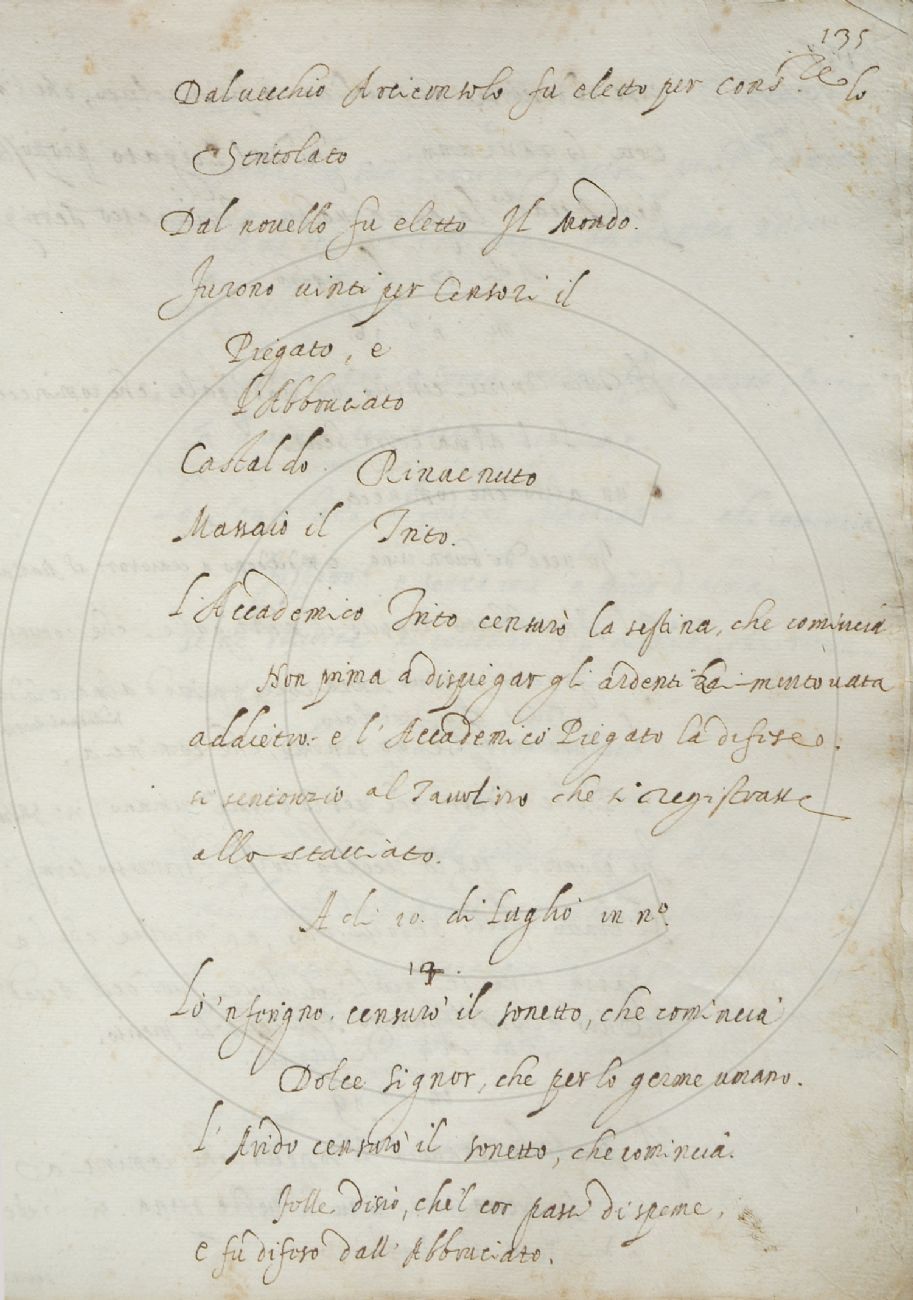 135
Dal vecchio Arciconsolo fu eletto per Cons.re lo
Stritolato
Dal novello fu eletto Il Mondo.
Furono vinti per Censori il
Piegato, e
l'Abbruciato
Castaldo Rinvenuto
Massaio il Trito.
L'Accademico Trito censurò la sestina, che comincia
Non prima a dispiegar gli ardenti mentovata
addietro. e l'Accademico Piegato la difese.
si sentenziò al Tavolino che si registrasse
allo stacciato.
A dì 10. di Luglio in n.o
19.
Lo 'nferigno. censurò il sonetto, che comincia
Dolce signor, che per lo germe umano.
L'Arido censurò il sonetto, che comincia.
Folle disio, che'l cor pasci di speme,
e fu difeso dall'Abbruciato.